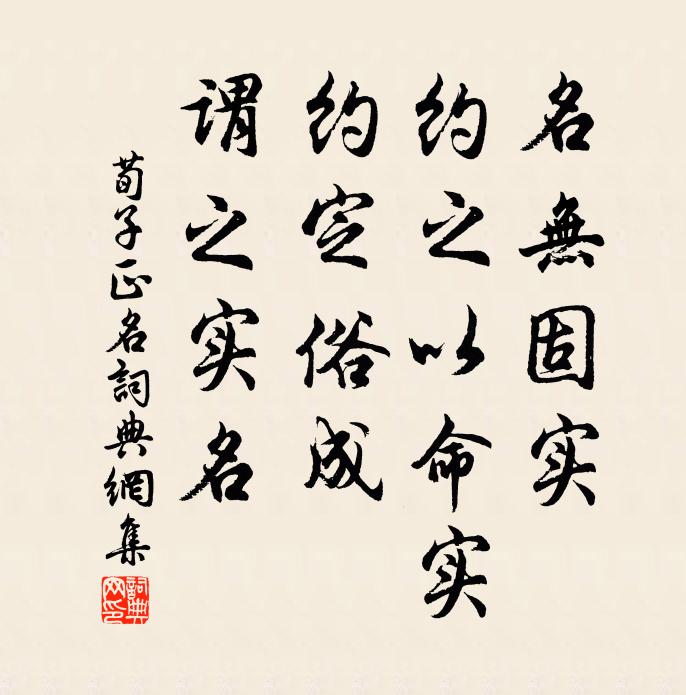 名無固实
约之以命实
约定俗成
谓之实名
荀子正名詞典網集
詞典网印